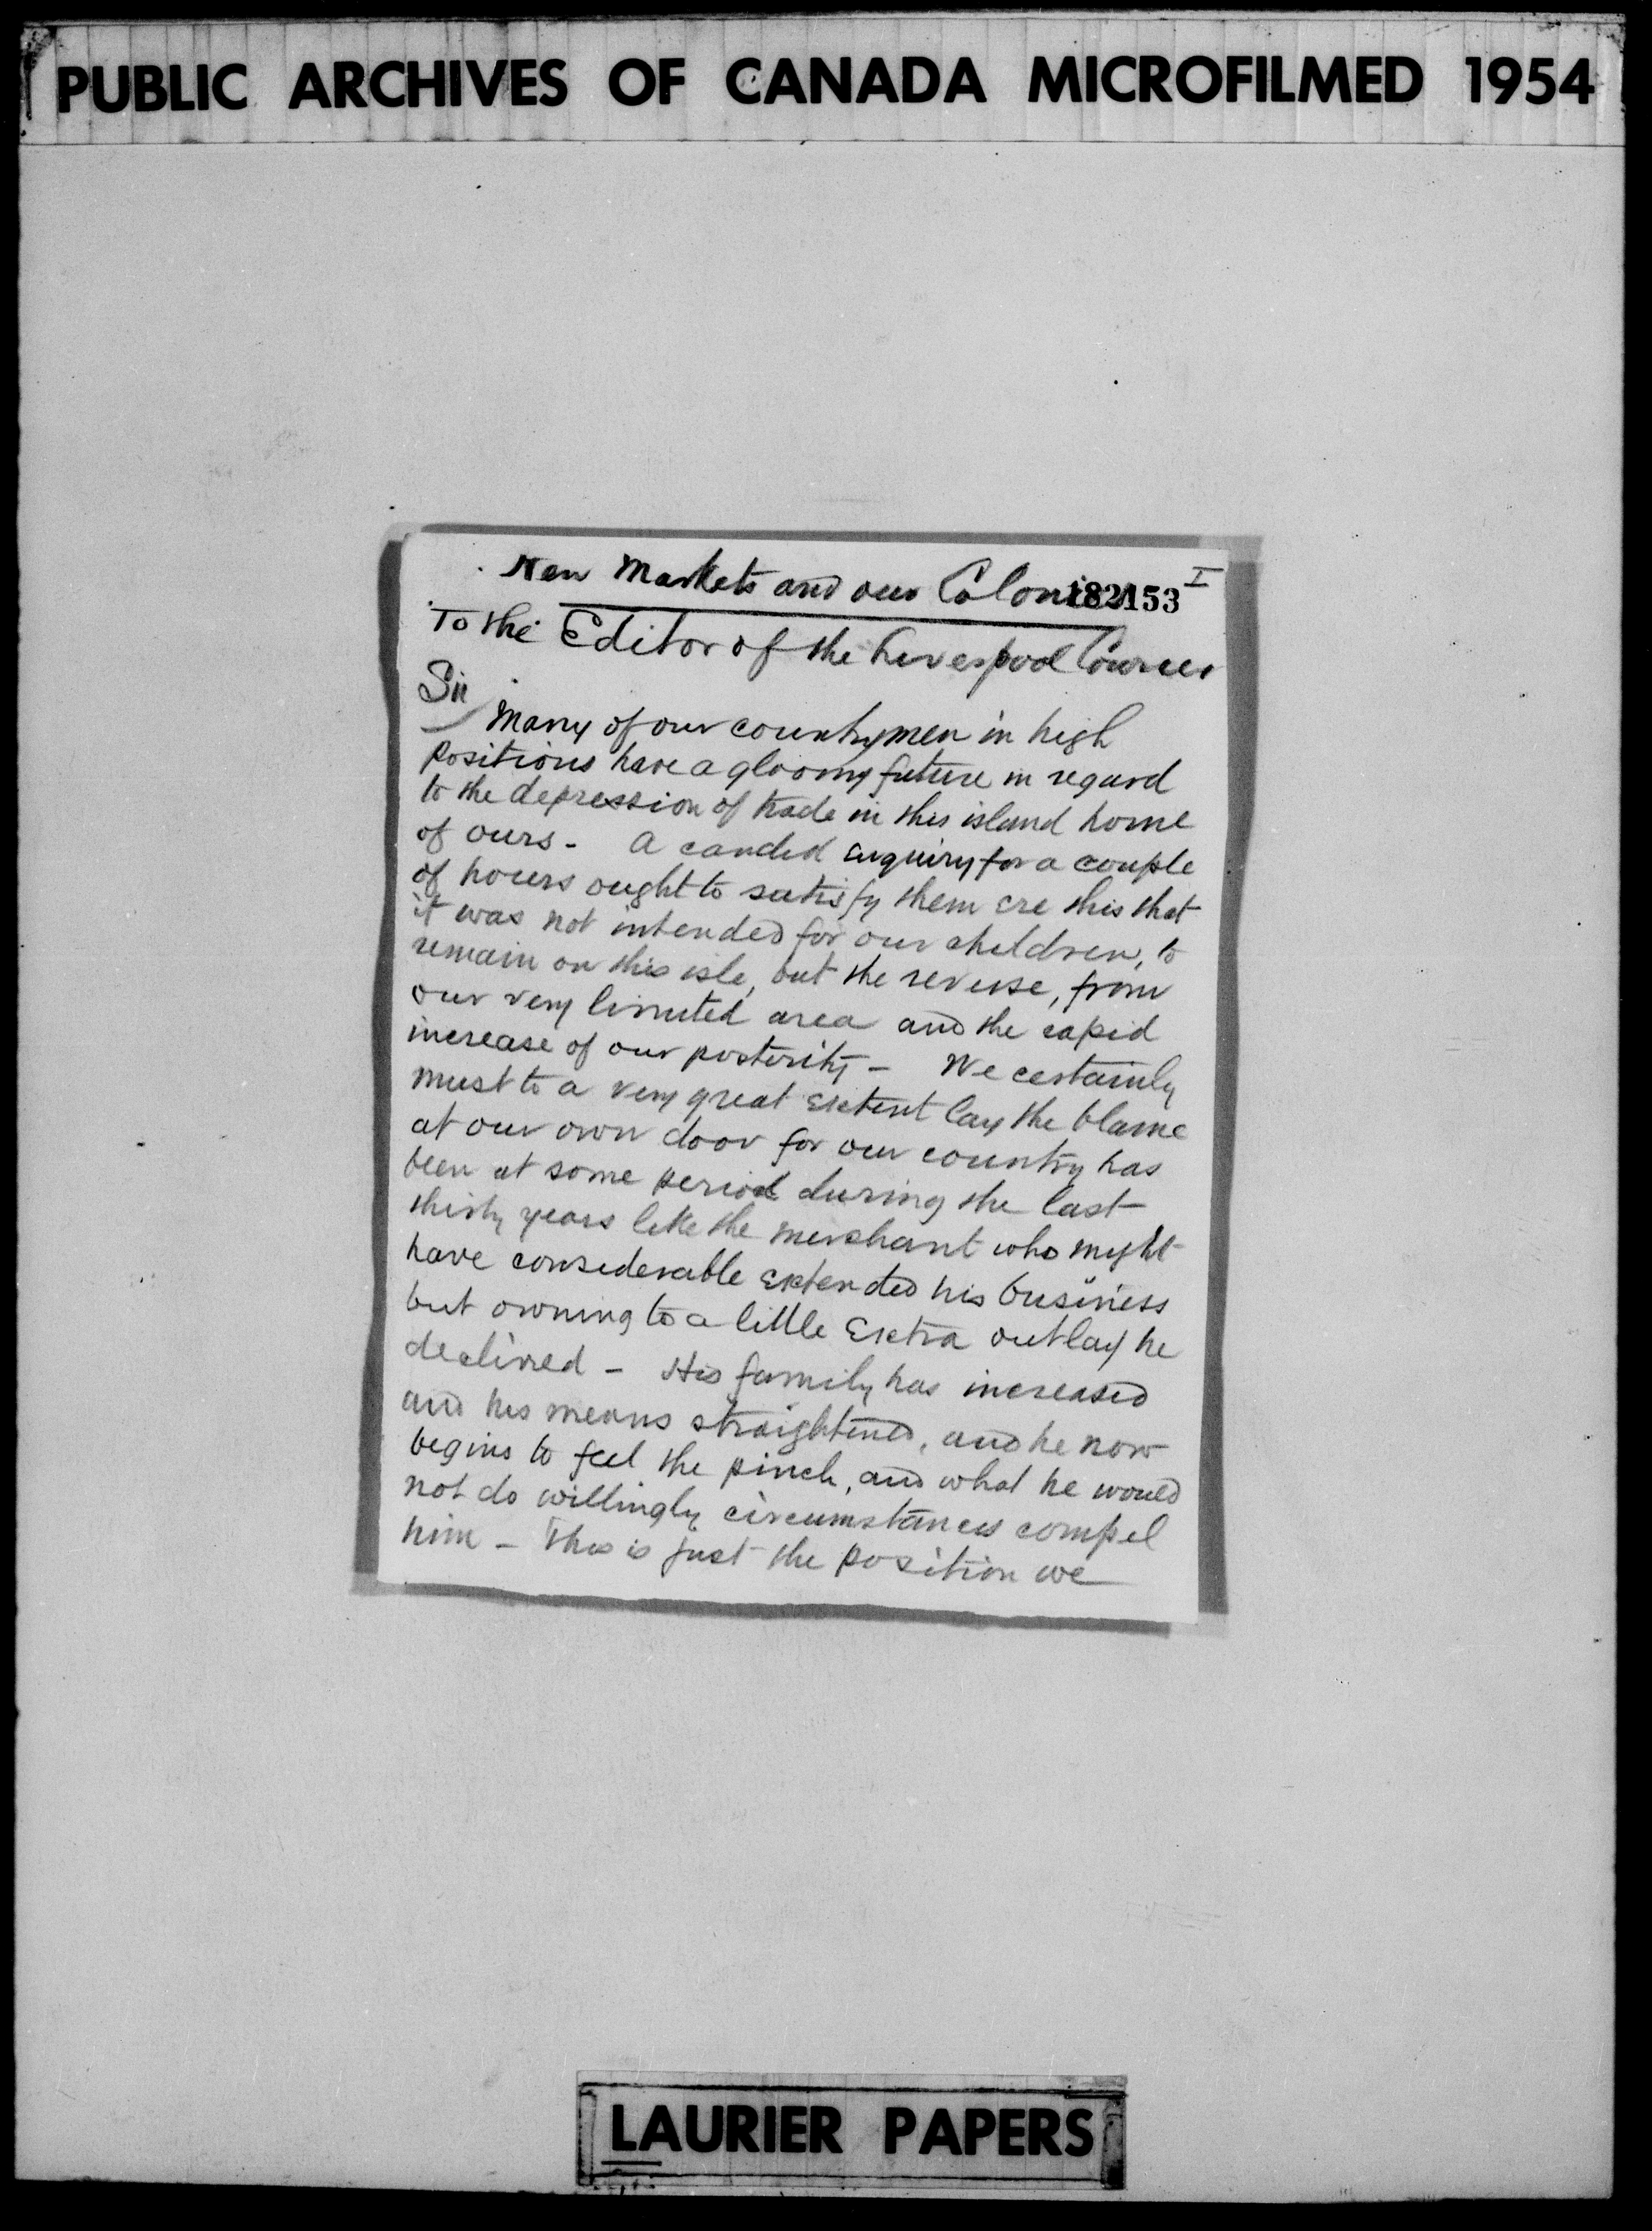 PUBLIC ARCHIVES OF CANADA MICROFILMED 1954
I
New Markets and our Colonies
182153
To the Editor of the Liverpool Courier
Sir
Many of our countrymen in high
positions have a gloomy future in regard
to the depression of trade in this island home
of ours - A candid enquiry for a couple
of hours ought to satisfy them ere this that
it was not intended for our children, to
remain on this isle, but the reverse, from
our very limited area and the rapid
increase of our posterity - We certainly
must to a very great extent lay the blame
at our own door for our country has
been at some period during the last
thirty years like the merchant who might
have considerable extended his business
but owning to a little extra outlay he
declined - His family has increased
and his means straightened, and he now
begins to feel the pinch, and what he would
not do willingly circumstances compel
him - This is just the position we
LAURIER PAPERS